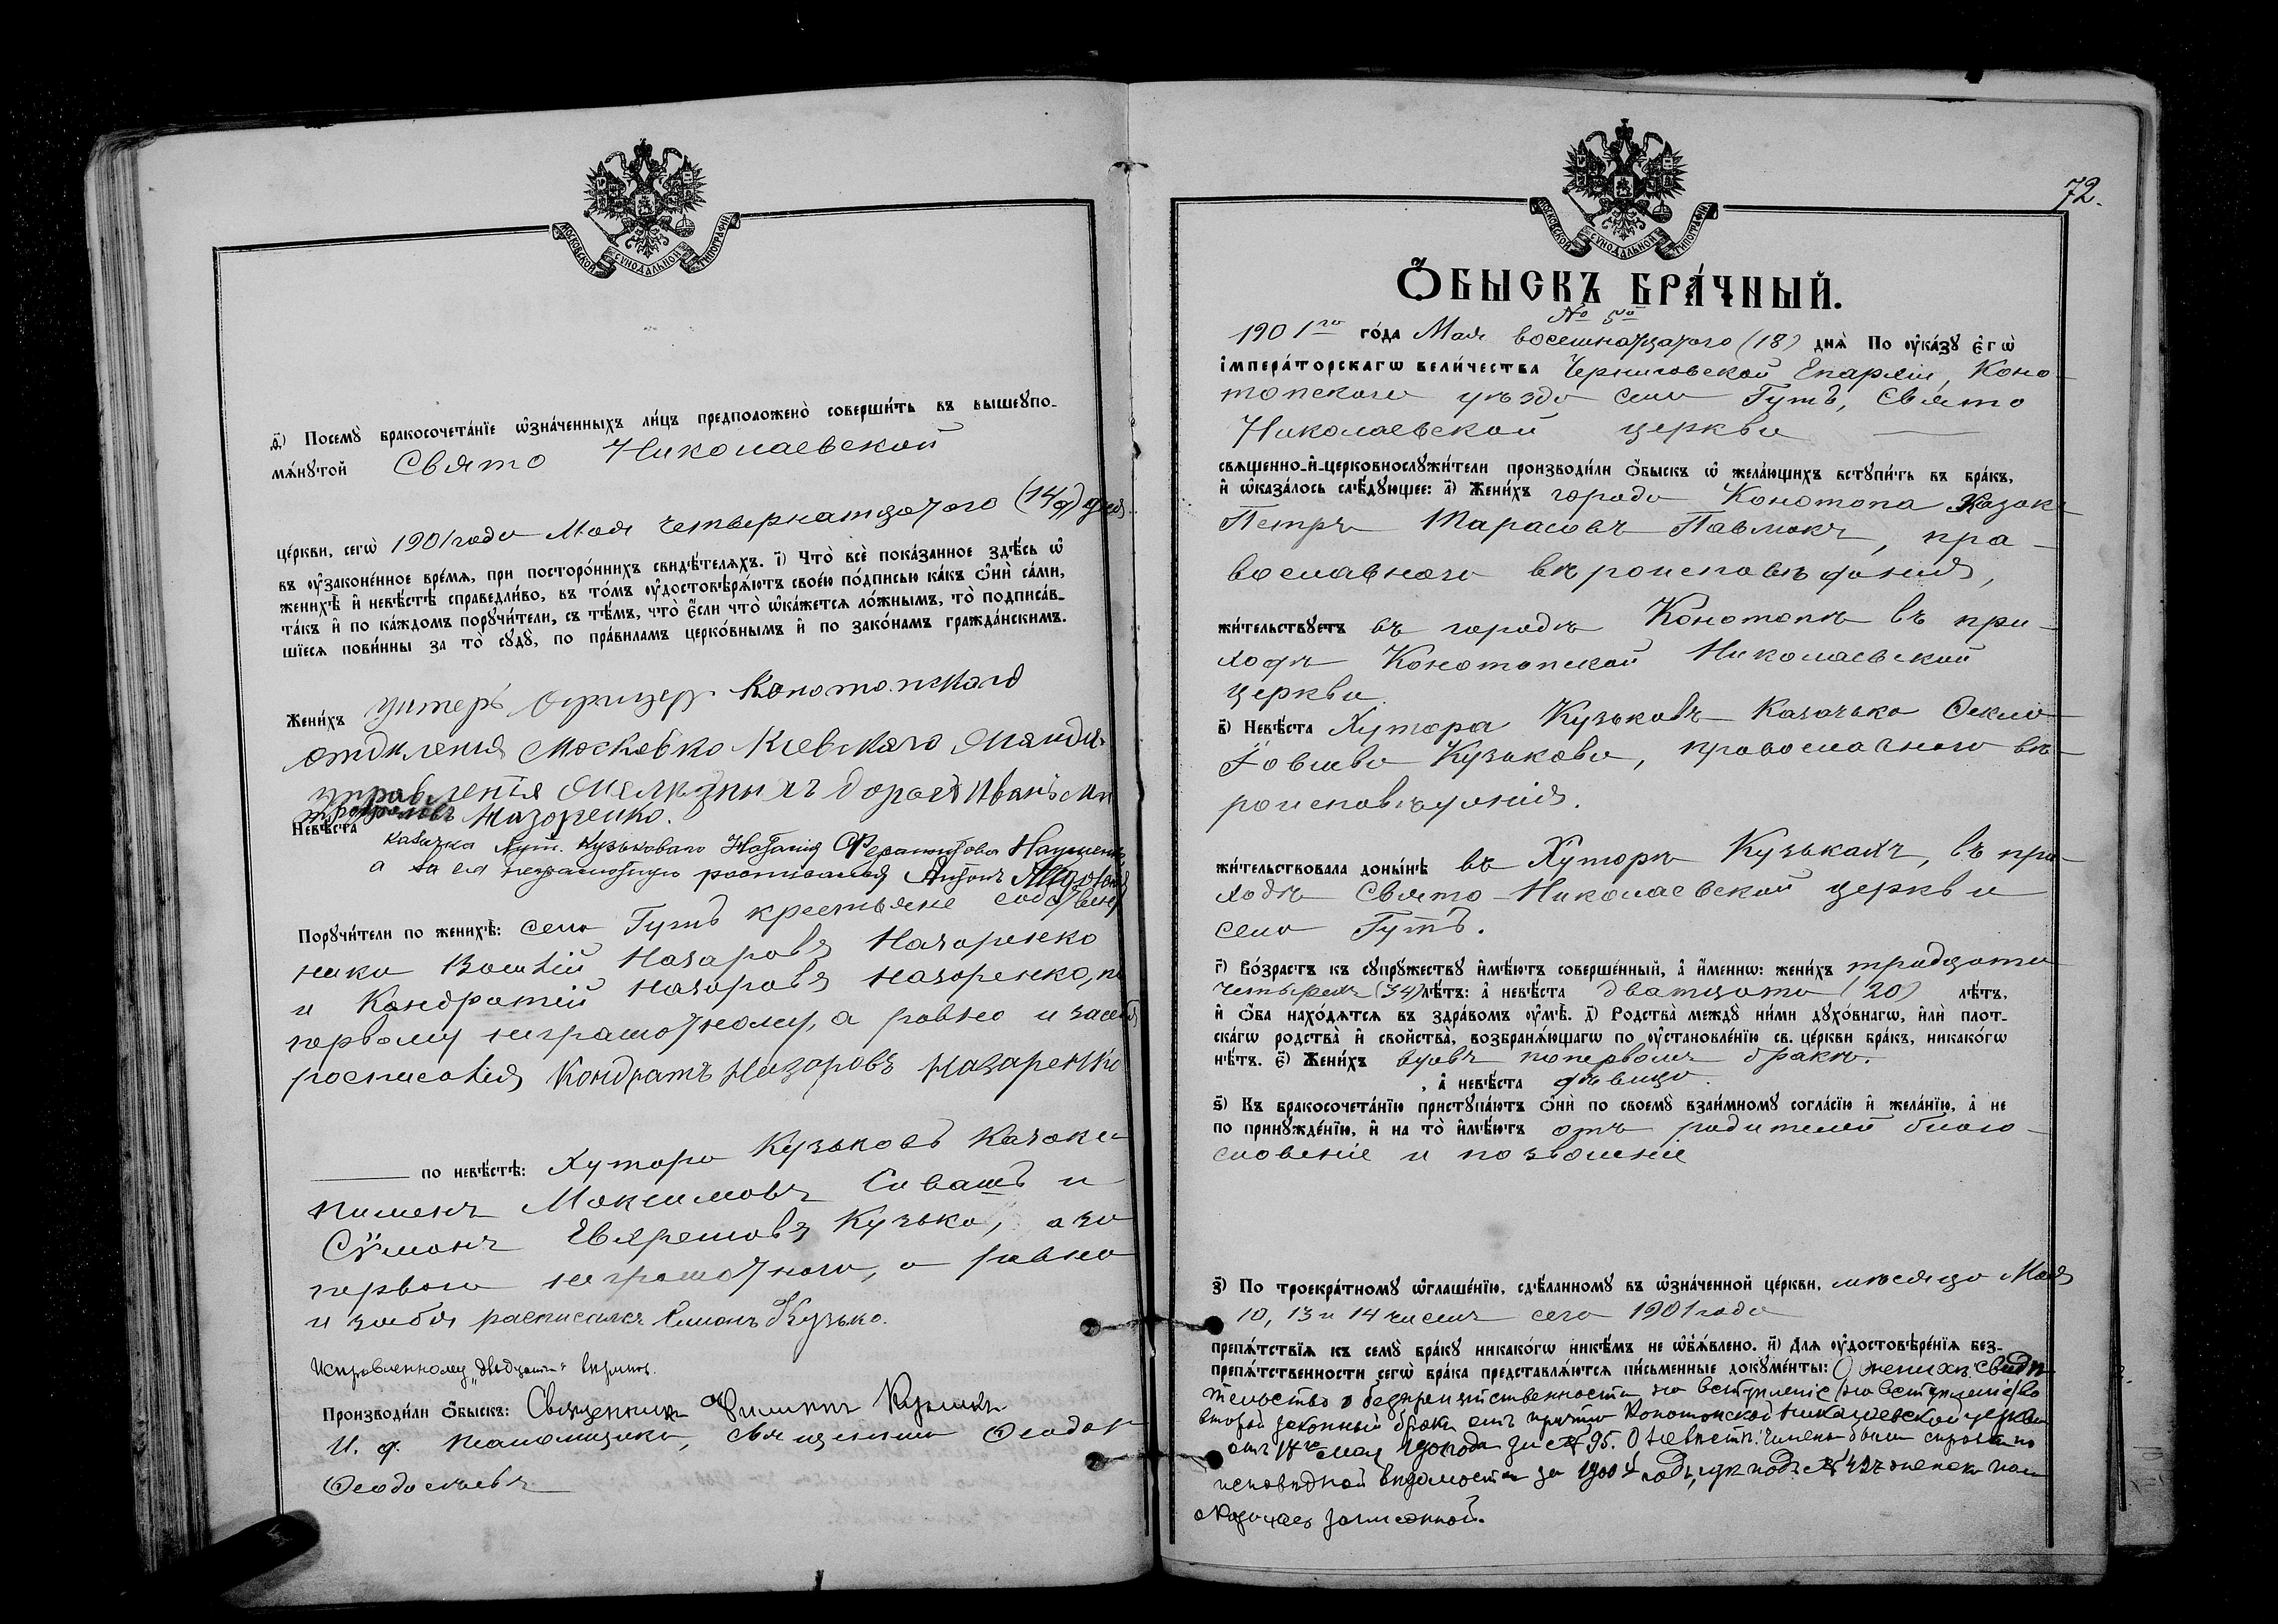 МОСКОВСКОЙ СѴНОДАЛЬНОЙ ТИПОГРАФІИ
д҃і) Посемꙋ̀ бракосочета́нїе ѡ҆зна́ченныхъ ли́цъ предположено̀ соверши́ть въ вышеꙋпо-
мѧ́нꙋтой Свято Николаевской
це́ркви, сегѡ̀ 1901 года Мая четвернатцатого (14го) дня
въ ᲂу҆зако́ненное вре́мѧ, при посторо́ннихъ свидѣ́телѧхъ. і҃) Что̀ всѐ пока́занное здѣ́сь ѡ҆
женихѣ̀ и҆ невѣ́стѣ справедли́во, въ то́мъ ᲂу҆достовѣрѧ́ютъ свое́ю по́дписью ка́къ ѻ҆нѝ са́ми,
та́къ и҆ по ка́ждомъ порꙋчи́тели, съ тѣ́мъ, что̀ є҆́сли что̀ ѡ҆ка́жетсѧ ло́жнымъ, то̀ подписа́в-
шїесѧ пови́нны за то̀ сꙋдꙋ̀, по пра́виламъ церко́внымъ и҆ по зако́намъ гражда́нскимъ.
Жени́хъ Унтеръ Офицеръ Конотопскаго
отдѣленія Московко Кіевскаго Жанд.
управленія желѣзныхъ дорогъ Иванъ
Назаренко.
Невѣ́ста казачка Хут. Кузьковаго Наталія Науменк
а за ея неграмотную росписался Антонъ
Порꙋчи́тели по женихѣ̀: села Гутъ крестьяне собствен
ники Назаровъ Назаренко
и Кондратій Назаровъ Назаренко, по
первому неграмотному, а ровно и за себя
росписался Кондратъ Назаровъ Назаренко
по невѣ́стѣ: Хутора Кузьковъ Казаки
Пименъ Максимовъ Сивашъ и
Сѵмонъ Евфремовъ Кузько, а за
первого неграмотного, а равно
и за себя расписался Симонъ Кузько.
Исправленному „двадцать“ вѣримъ.
Производи́ли ѻ҆́быскъ: Священникъ Филиппъ
И. д. псаломщика, священника Ѳеодот
72.
МОСКОВСКОЙ СѴНОДАЛЬНОЙ ТИПОГРАФІИ
Ѻ҆́БЫСКЪ БРА́ЧНЫЙ.
№ 5й
1901го го́да Мая восемнатцатого (18) днѧ̀ По ᲂу҆ка́зꙋ є҆гѡ̀
і҆мпера́торскагѡ вели́чества Черниговской Епархіи, Коно-
топского уѣзда села Гутъ, Свято
Николаевской церкви
свѧщенно-и҆-церковнослꙋжи́тели производи́ли ѻ҆́быскъ ѡ҆ жела́ющихъ встꙋпи́ть въ бра́къ,
и҆ ѡ҆каза́лось слѣ́дꙋющее: а҃) Жени́хъ города Конотопа Казакъ
Петръ Тарасовъ Павлюкъ, пра-
вославного вѣроисповѣданія,
жи́тельствꙋетъ въ городѣ Конотопѣ въ при-
ходѣ Конотопской Николаевской
церкви.
в҃) Невѣ́ста Хутора Кузьковъ Казачька Ѳекла
Іовлева Кузькова, православного вѣ-
роисповѣданія.
жи́тельствовала доны́нѣ въ Хуторѣ Кузькахъ, въ при-
ходѣ Свято-Николаевской церкви
села Гутъ.
г҃) Во́зрастъ къ сꙋпрꙋ́жествꙋ и҆мѣ́ютъ соверше́нный, а҆ и҆́меннѡ: жени́хъ тридцати
четырехъ (34) лѣ́тъ: а҆ невѣ́ста дватцати (20) лѣ́тъ,
и҆ ѻ҆́ба нахо́дѧтсѧ въ здра́вомъ ᲂу҆мѣ̀. д҃) Родства̀ междꙋ̀ ни́ми дꙋхо́внагѡ, и҆лѝ плот-
ска́гѡ родства̀ и҆ сво́йства, возбранѧ́ющагѡ по ᲂу҆становле́нїю св. це́ркви бра́къ, никако́гѡ
нѣ́тъ. є҃) Жени́хъ вдовъ поперьвомъ бракѣ.
, а҆ невѣ́ста дѣвица.
ѕ҃) Къ бракосочета́нїю пристꙋпа́ютъ ѻ҆нѝ по своемꙋ̀ взаи́мномꙋ согла́сїю и҆ жела́нїю, а҆ не
по принꙋжде́нїю, и҆ на то̀ и҆мѣ́ютъ отъ родителей благо-
словеніе и позволеніе
з҃) По троекра́тномꙋ ѡ҆глаше́нїю, сдѣ́ланномꙋ въ ѡ҆зна́ченной це́ркви, мѣсяца Мая
10, 13 и 14 чиселъ сего 1901 года
препѧ́тствїѧ къ семꙋ̀ бра́кꙋ никако́гѡ никѣ́мъ не ѡ҆б̾ѧ́влено. и҃) Для ᲂу҆достовѣре́нїѧ без-
препѧ́тственности сегѡ̀ бра́ка представлѧ́ютсѧ пи́сьменные докꙋме́нты: О женихѣ: свидѣ-
тельство о безпрепятственности на вступленіе на вступленіе во
второй законный бракъ отъ причта Конотопской Николаевской церкви
отъ мая года за № 95. О невѣстѣ:
исповѣдной вѣдомости за 1900й годъ, гдѣ подъ № женска пола
записанной.